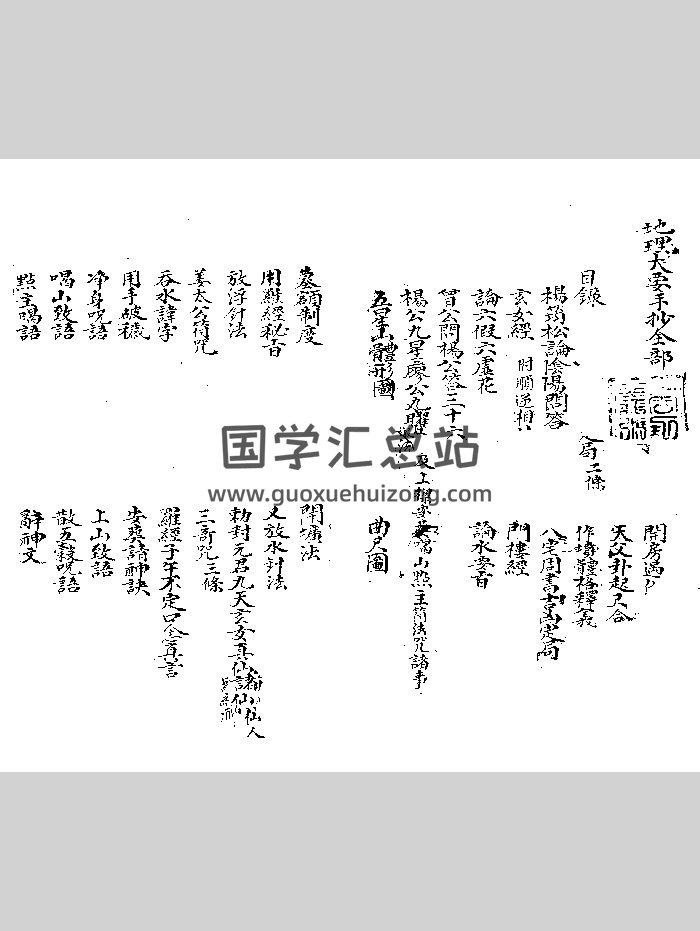 地理大要手抄全部
目錄
楊筠松論陰陽問答 局二條
玄女經 附順逆相
論六假六虛花
曾公問楊公答三十六
楊公九星廖公九曜 山點主符法咒諸事
五星山體形圖
曲尺圖
開房過
天父卦起尺合
作墳體格釋義
八宅周書吉凶定局
門樓經
論水要旨
墓碩制度
用羅經秘旨
放浮針法
姜太公符咒
吞水諱字
用手破穢
净身咒語
喝山致語
點主喝語
開壙法
又放水針法
勅封元君九天玄女真仙 仙人
三奇咒三條
羅經子午不定口念真言
安葬請神訣
上山致語
散五穀咒語
辭神文
国学汇总站
www.guoxuehuizong.com